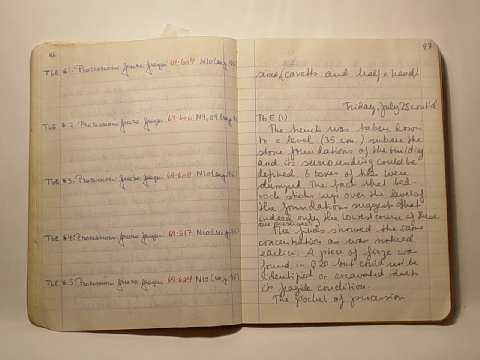 96
TbE #1: Procession fresco fragm 69-604 N10 (Aug 1961
TbE #2. Procession fresco fragm 69-606 N9, 09 (Aug 
TbE #3. Procession fresco fragm 69-608 N10 (Aug 1961
TbE #4: Procession fresco fragm 69-617 N10 (Aug 1961
TbE #5: Procession fresco fragm 69-624 N10 (Aug 1961
97
area (cavetto and half a head)
Friday, July 28 cont'd
TbE (1)
The trench was taken down
to a level (35 cm.) where the
stone foundations of the building
and its surrounding could be
defined. 6 boxes of tiles were
dumped. The fact that bed-
rock sticks up over the level of
the foundations suggests that
indeed only the lowest course of these
are preserved.
The phos showed the same
concentration as was noticed
earlier. A piece of frieze was
found in P20 but could not be
identified or excavated due to
its fragile condition.
The pocket of procession